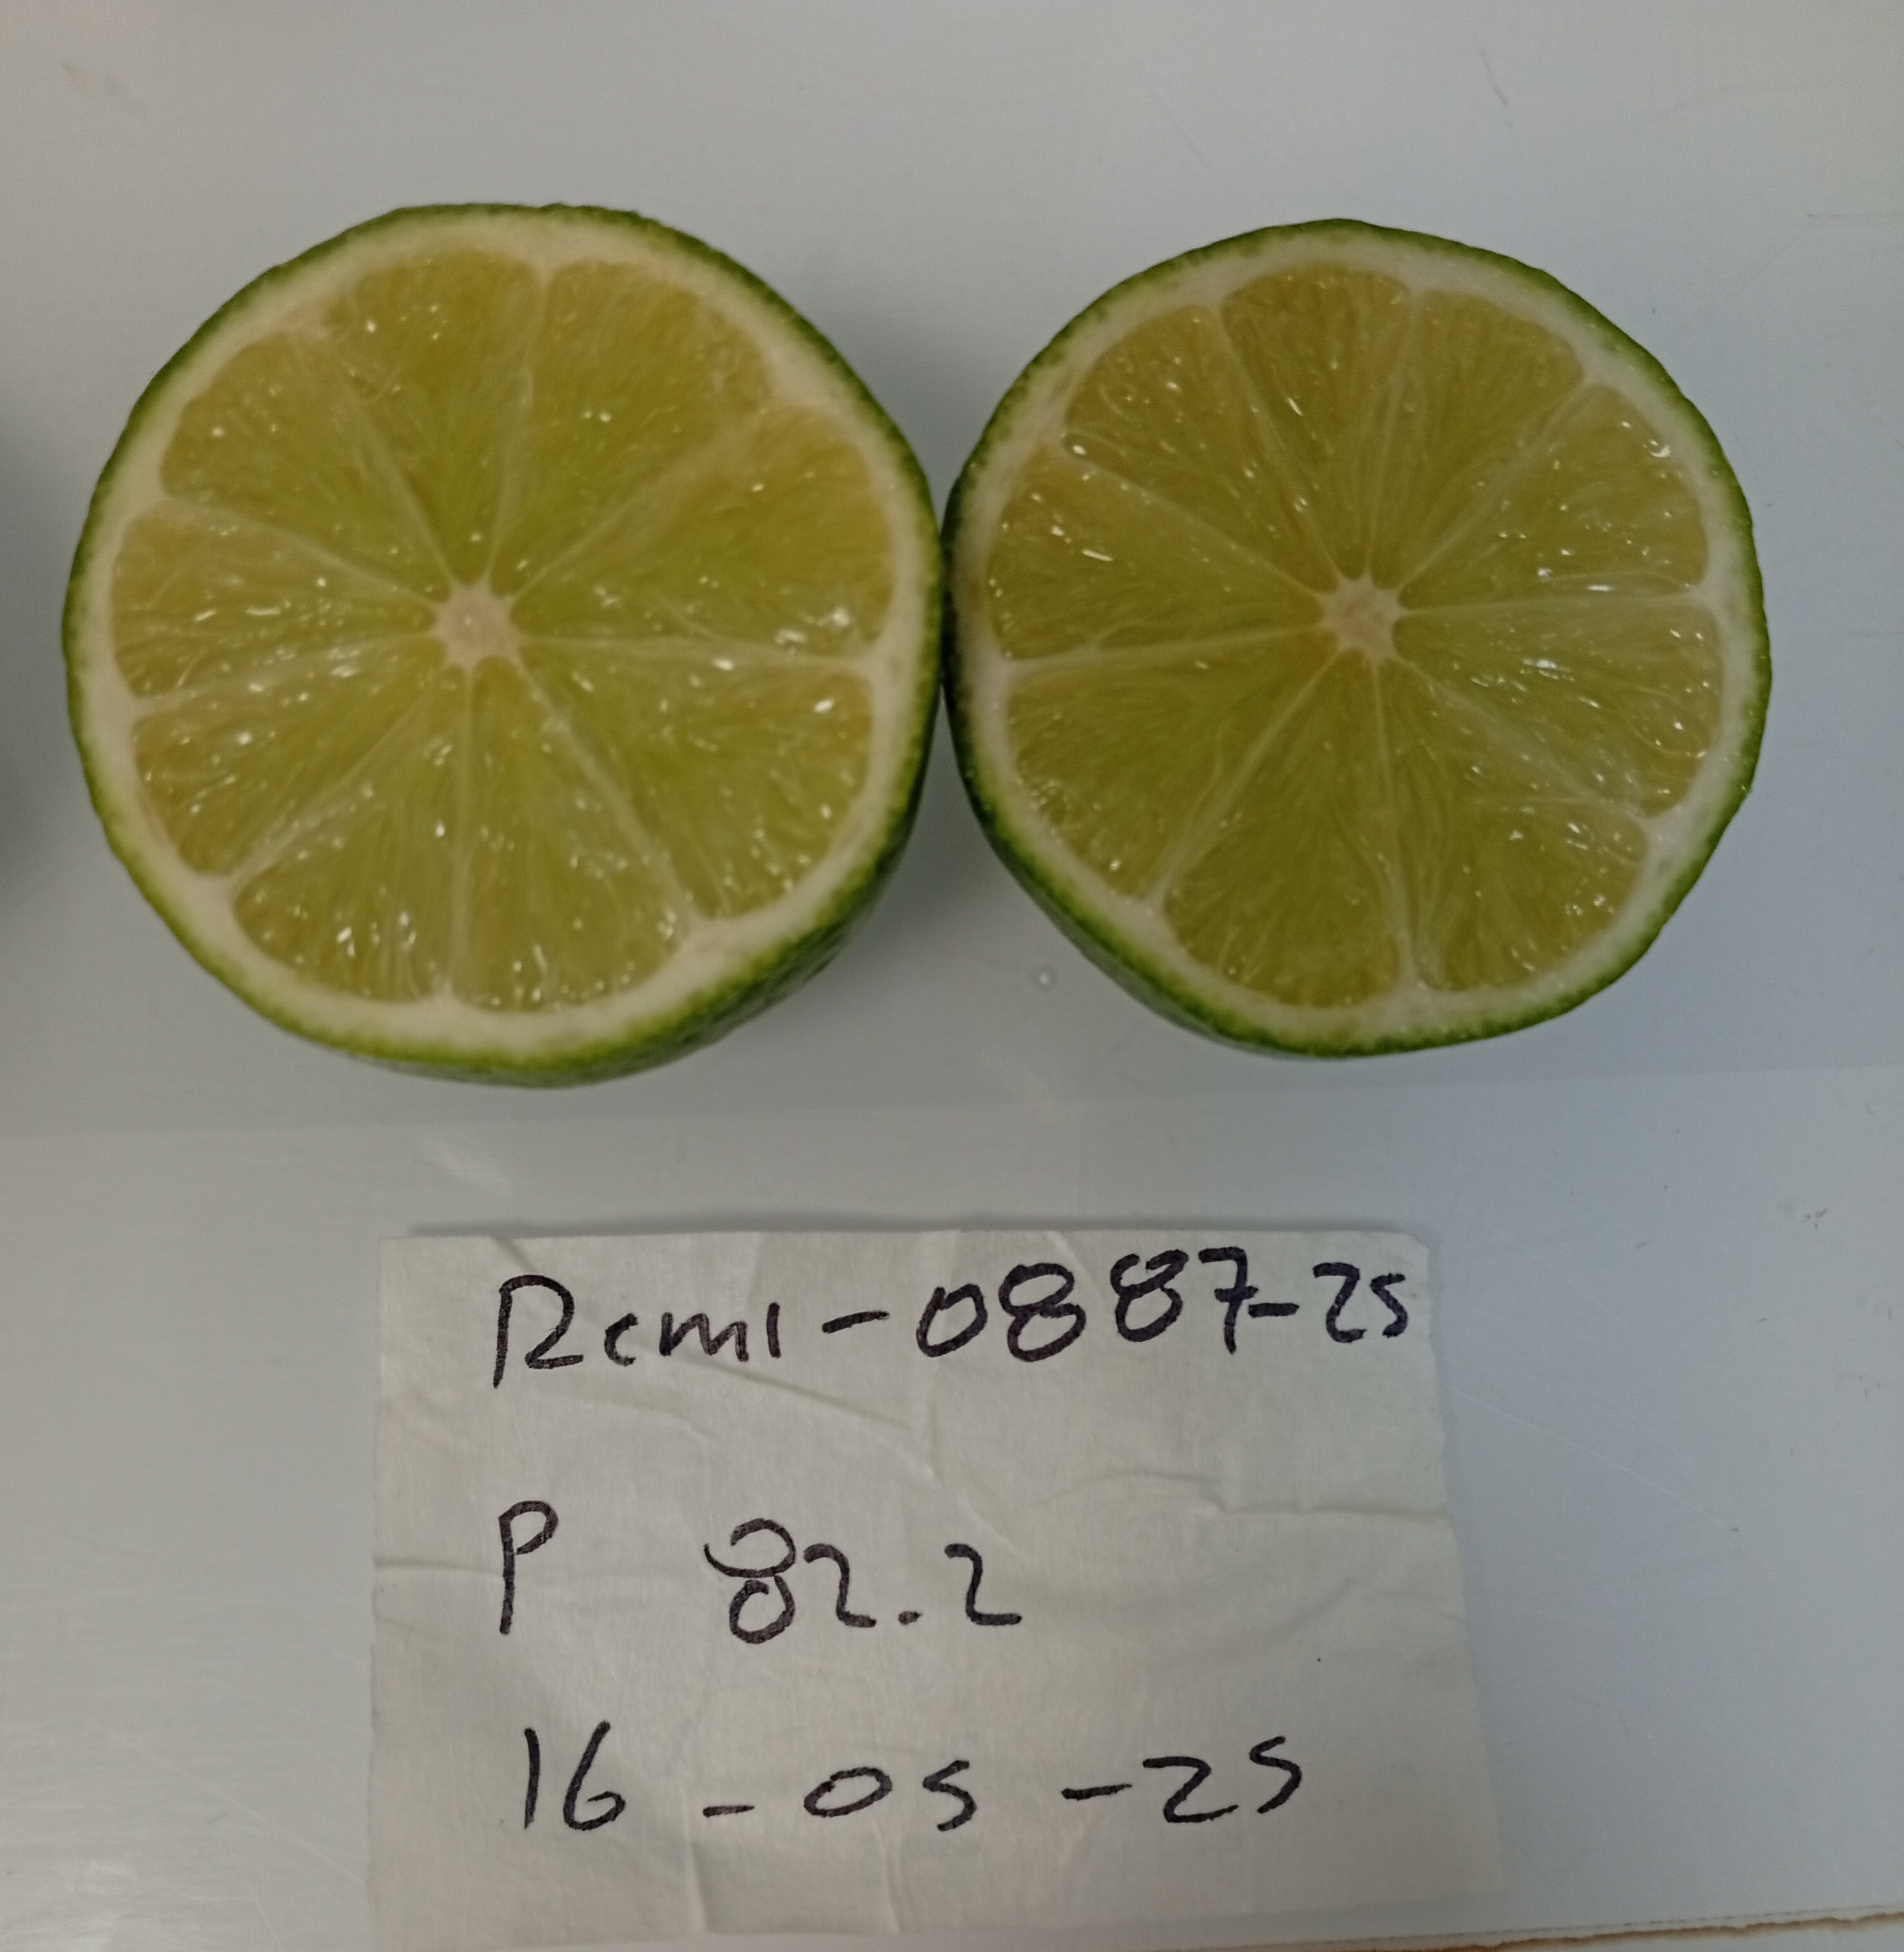 Rcm1-0887-25
P 82.2
16-05-25